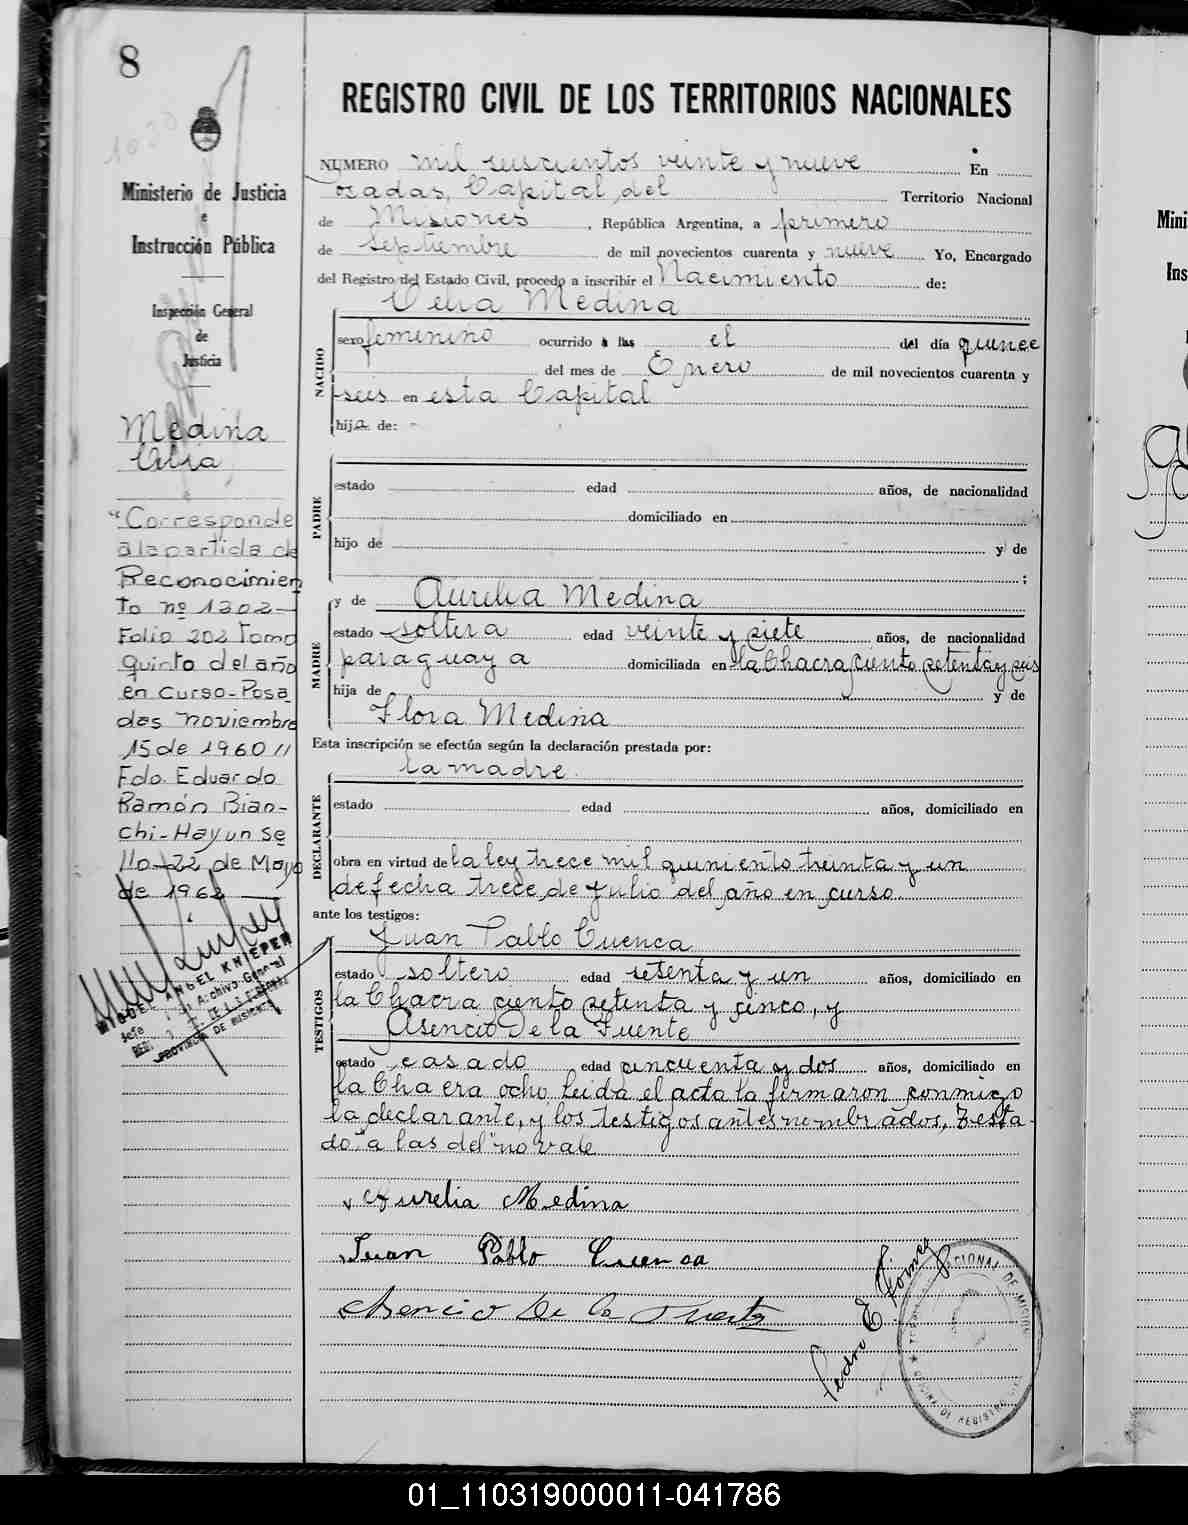 8
Ministerio de Justicia
e
Instrucción Pública
Inspección General
de
Justicia
Medina
Celia
"Corresponde
a la partida de
Reconocimien
to nº 1202-
Folio 202 Tomo
Quinto del año
en curso-Posa
das noviembre
15 de 1960 //
Fdo. Eduardo
Ramón Bian-
chi-Hay un se
llo-22 de Mayo
de 1962
MIGUEL ANGEL KNIEPER
Jefe Archivo General
PROVINCIA DE MISIONES
REGISTRO CIVIL DE LOS TERRITORIOS NACIONALES
NUMERO mil seiscientos veinte y nueve En
osadas, Capital del Territorio Nacional
de Misiones, República Argentina, a primero
de septiembre de mil novecientos cuarenta y nueve Yo, Encargado
del Registro del Estado Civil, procedo a inscribir el Nacimiento de:
Celia Medina
NACIDO
sexo femenino ocurrido a las el del día quince
del mes de Enero de mil novecientos cuarenta y
seis en esta Capital
hija de:
PADRE
estado edad años, de nacionalidad
domiciliado en
hijo de y de
;
MADRE
y de Aurelia Medina
estado soltera edad veinte y siete años, de nacionalidad
paraguaya domiciliada en la Chacra ciento setenta y seis
hija de y de
Flora Medina
Esta inscripción se efectúa según la declaración prestada por:
la madre
DECLARANTE
estado edad años, domiciliado en
obra en virtud de la ley trece mil quiniento treinta y un
de fecha trece de julio del año en curso.
ante los testigos:
Juan Pablo Cuenca
TESTIGOS
estado soltero edad setenta y un años, domiciliado en
la Chacra ciento setenta y cinco, y
Asencio De la Fuente
estado casado edad cincuenta y dos años, domiciliado en
la Chacra ocho leida el acta la firmaron conmigo
la declarante, y los testigos antes nombrados, Testa-
do "a las del" no vale
Aurelia Medina
Juan Pablo Cuenca
Asencio De la Fuente
Pedro E Gómez
01_110319000011-041786